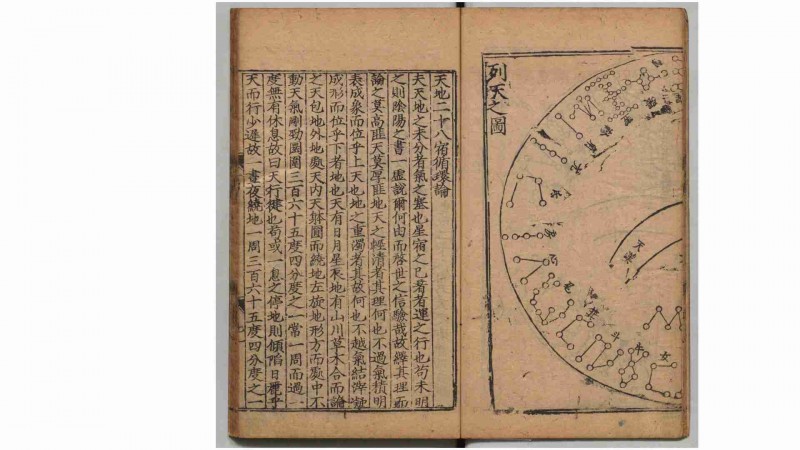 列天之圖
天漢
亢
氐
房
心
尾
箕
斗
牛
女
天地二十八宿循環論
夫天地之未分者氣之塞也星宿之已著者運之行也苟未明
之則陰陽之書一虛說爾何由而啓世之信驗哉故繹其理而
論之莫高匪天莫厚匪地天之輕清者其理何也不過氣積明
成象而位乎上天也地之重濁者其故何也不越氣結
成形而位乎下者地也天有日月星辰地有山川草木合而論
之天包地外地處天內天體圓而繞地左旋地形方而處中不
動天氣剛勁周圍三百六十五度四分度之一常一周而過一
度無有休息故曰天行健也苟或一息之停地則傾陷日麗乎
天而行少遲故一晝夜繞地一周三百六十五度四分度之一